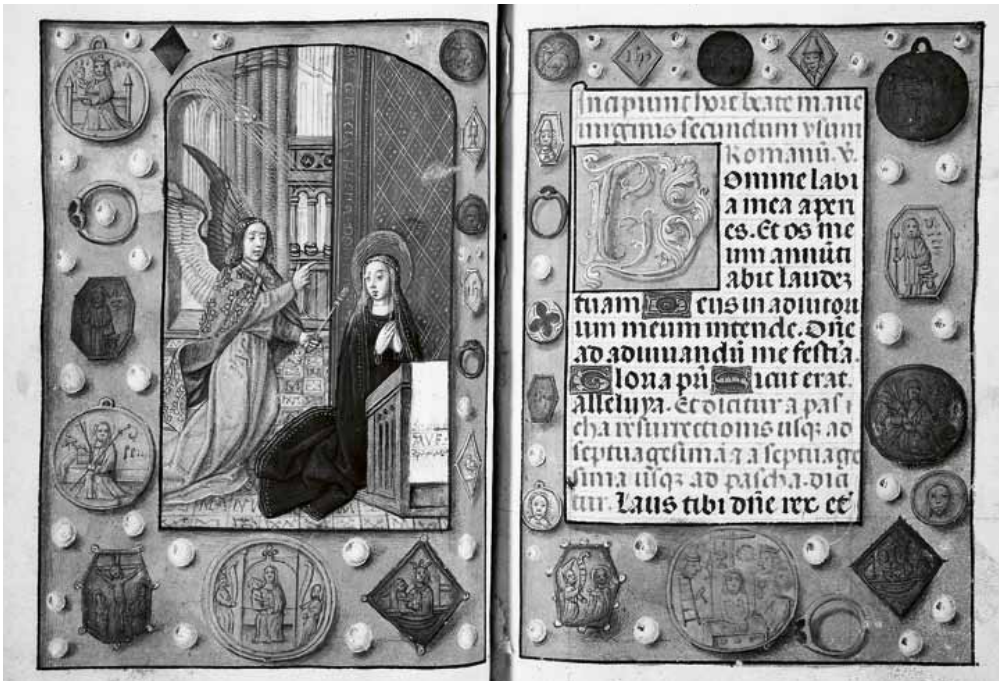 AVE
Incipiunt hore beate marie
virginis secundum vsum
Romanũ. v̄.
Domine labi
a mea aperi
es. Et os me
um annũti
abit laudez
tuam Deus in adiutori
um meum intende. Dñe
ad adiuuandũ me festia.
Gloria pr̃i Sicut erat.
alleluya. Et dicitur a pas
cha resurrectionis usq̃ ad
septuagesimã ⁊ a septuage
sima usq̃ ad pascha. dici
tur. Laus tibi dñe rex et̃